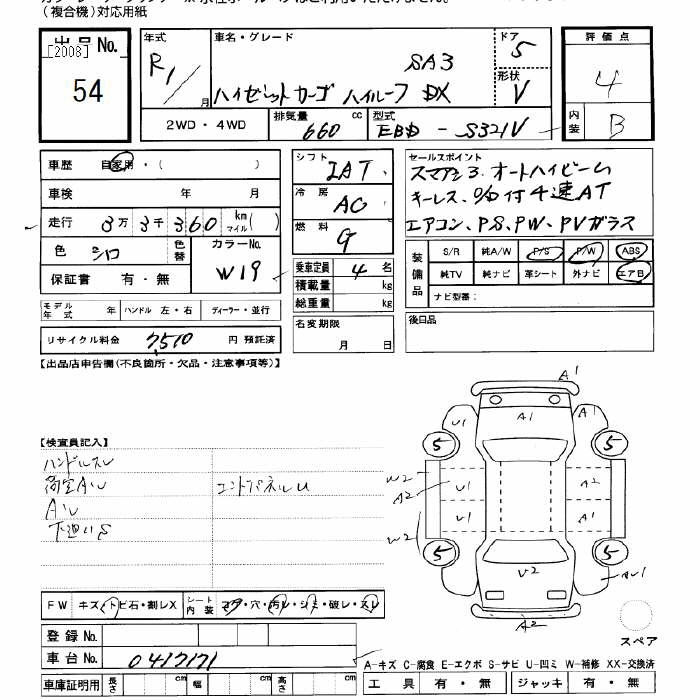 (複合機)対応用紙
出品No.
[2008]
54
年式
R1/月
車名・グレード
SA3
ハイゼットカーゴ ハイルーフ DX
ドア
5
形状
V
評価点
4
内装
B
2WD・4WD
排気量
660 cc
型式
EBD - S321V
車歴 自家用・( )
車検 年 月
走行 3万 3千 360 km マイル( )
色 シロ 色替
カラーNo.
W19
保証書 有・無
モデル年式 年 ハンドル 左・右 ディーラー・並行
リサイクル料金 7,510 円 預託済
シフト
IAT
冷房
AC
燃料
G
乗車定員 4 名
積載量 kg
総重量 kg
名変期限
月 日
セールスポイント
スマアシ3.オートハイビーム
キーレス、O/D付4速AT
エアコン、PS、PW、PVガラス
装備品
S/R 純A/W P/S P/W ABS
純TV 純ナビ 革シート 外ナビ エアB
ナビ型番:
後日品
【出品店申告欄(不良箇所・欠品・注意事項等)】
【検査員記入】
ハンドルスレ
荷室AU
エンドパネルU
AU
下廻りS
A1
A1
A1
5
5
W2
A2
U1
A2
U1
A1
W2
5
5
V2
AU1
A2
スペア
FW キズ・トビ石・割レX
シート内装 コゲ・穴・汚レ・シミ・破レ・スレ
登録No.
車台No. 0417171
車庫証明用 長さ cm 幅 cm 高さ cm
A-キズ C-腐食 E-エクボ S-サビ U-凹ミ W-補修 XX-交換済
工具 有・無 ジャッキ 有・無